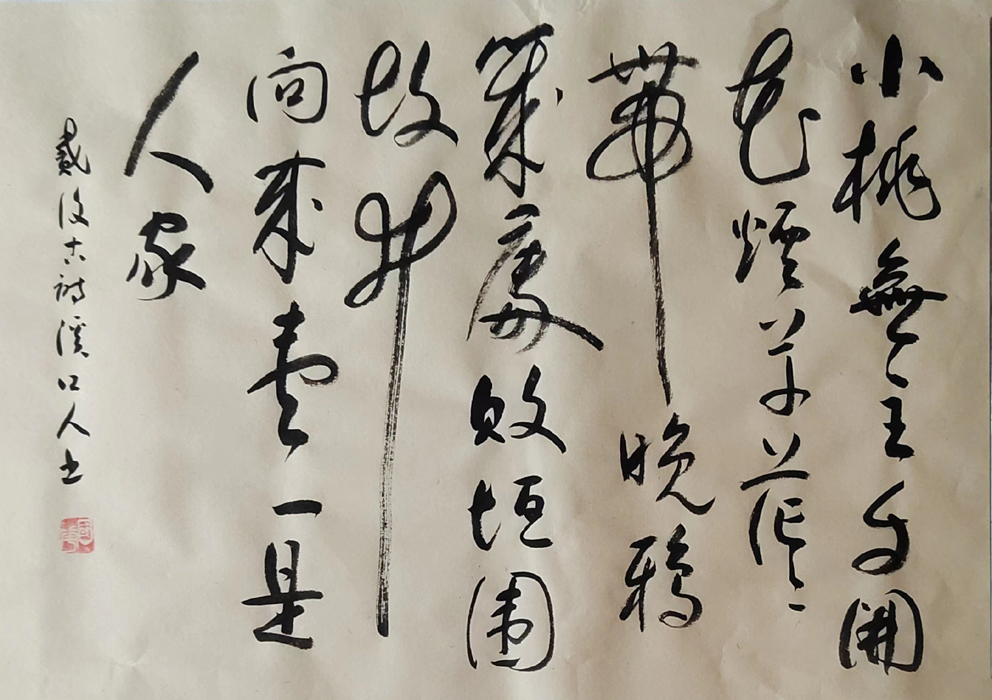 小桃無主自開
花煙草茫々
帶晚鴉
幾處敗垣圍
故井
向來壹一是
人家
戴復古詩溪口人书